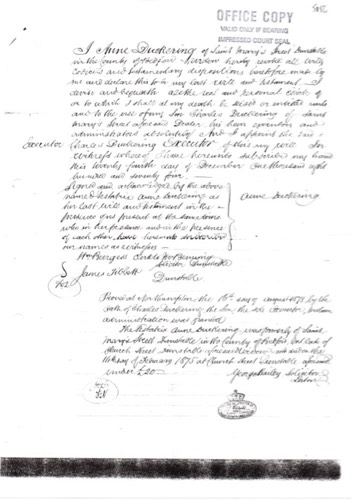 OFFICE COPY
VALID ONLY IF BEARING
IMPRESSED COURT SEAL
I Anne Duckering of Saint Mary's Street Dunstable
in the County of Bedford Widow hereby revoke all Wills
Codicils and testamentary dispositions heretofore made by
me and declare this to be my last Will and Testament I
devise and bequeath all the real and personal estate of
or to which I shall at my death be seised or entitled unto
and to the use of my Son Charles Duckering of Saint
Mary's Street aforesaid Dealer his heirs executors and
administrators absolutely And I appoint the said
Executor
Charles Duckering Executor of this my Will In
witness whereof I have hereunto subscribed my hand
this twenty fourth day of December One thousand eight
hundred and seventy four
Signed and acknowledged by the above
named testatrix Anne Duckering as
her last Will and testament in the
presence of us present at the same time
who in her presence and in the presence
of each other have hereunto subscribed
our names as witnesses
Anne Duckering
Wm Burgess
Dunstable
James
Dunstable
Proved at Northampton the day of August 1878 by the
Oath of Charles Duckering the Son the sole Executor
administration was granted
The testatrix Anne Duckering was formerly of Saint
Mary's Street Dunstable in the County of Bedford but late of
Church Street Dunstable aforesaid Widow and died on the
day of February 1875 at Church Street Dunstable aforesaid
under £20
Solicitor
Luton